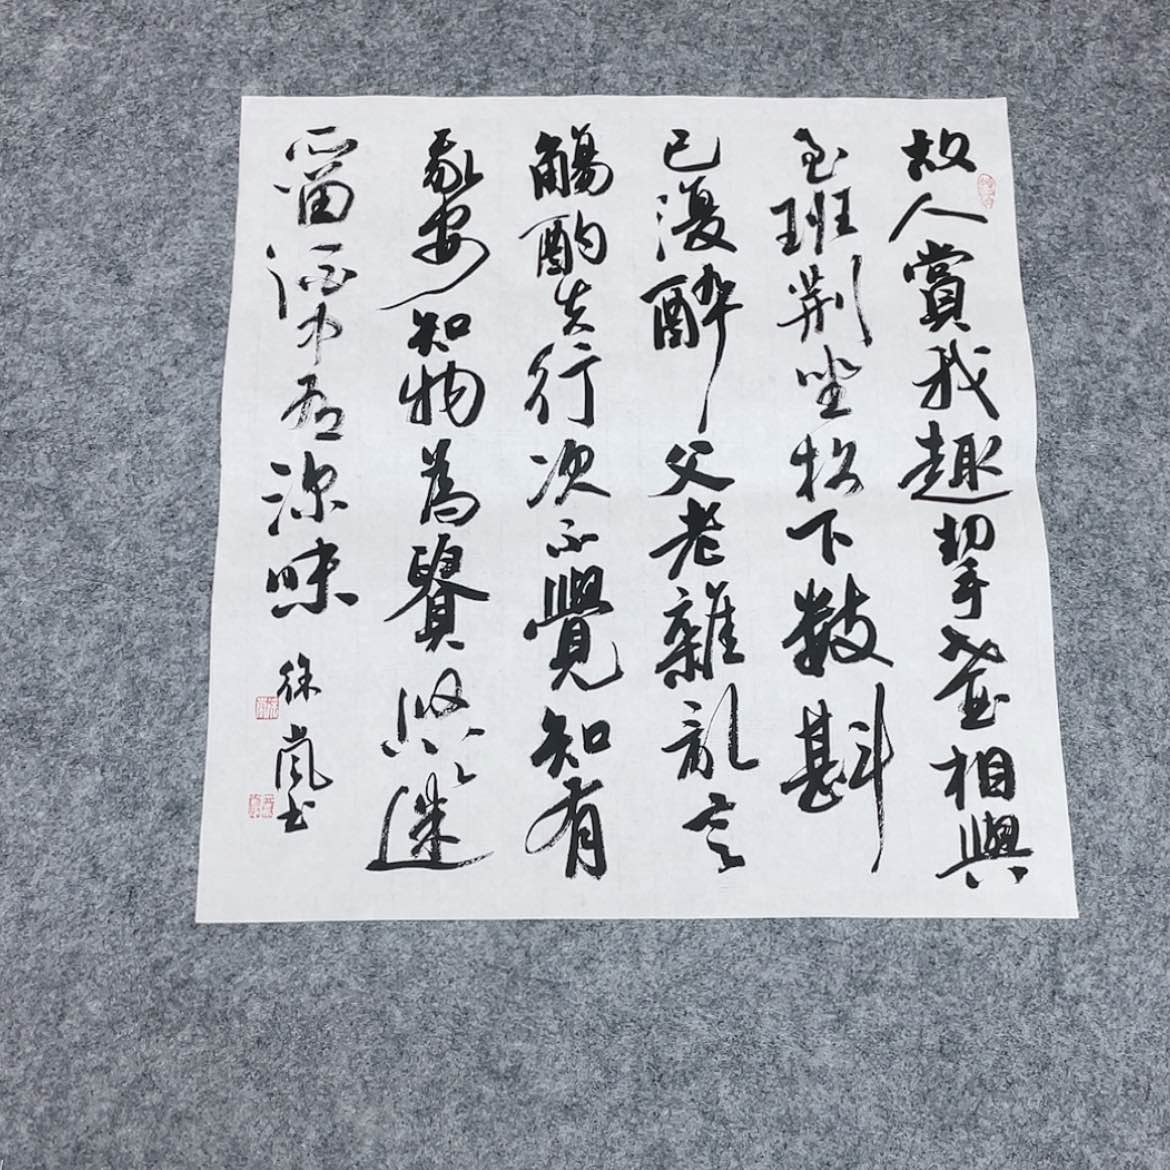 故人賞我趣挈壺相與
至班荊坐松下數斟
已復醉父老雜亂言
觴酌失行次不覺知有
我安知物為貴悠悠迷
所留酒中有深味
徐嵐書